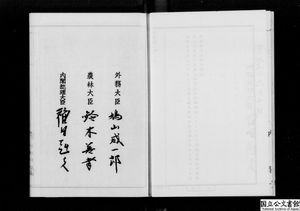 外務大臣 鳩山威一郎
農林大臣 鈴木善幸
内閣総理大臣 福田赳夫
国立公文書館
National Archives of Japan